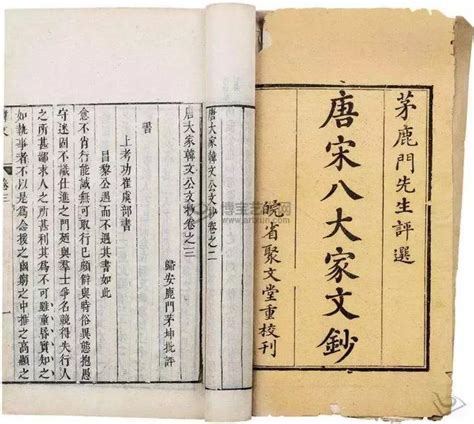 茅鹿門先生評選
唐宋八大家文鈔
皖省聚文堂重校刊
唐大家韓文公文抄卷之二
唐大家韓文公文抄卷之三
歸安鹿門茅坤批評
書
上考功崔虞部書
昌黎公遇而不遇其書如此
愈不肖行能誠無可取行已頗僻與時俗異態抱愚
守迷固不識仕進之門廼與羣士爭名競得失行人
之所甚鄙求人之所甚利其為不可雖童昏實知之
如執事者不以是為念援之幽窮之中推之高顯之
卷三
博宝艺术网
www.artxun.com